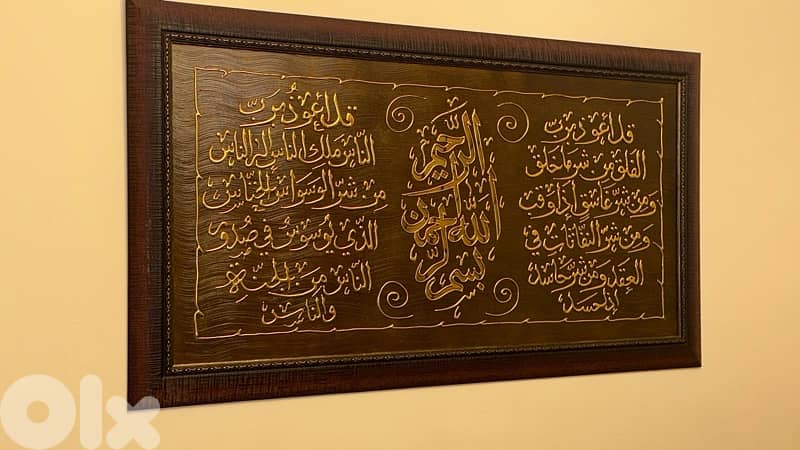 قل أعوذ برب
الفلق من شر ما خلق
ومن شر غاسق إذا وقب
ومن شر النفاثات في
العقد ومن شر حاسد
إذا حسد
بسم الله الرحمن الرحيم
قل أعوذُ بربّ
النّاس ملك الناس إله الناس
من شرّ الوسواس الخنّاس
الذّي يُوسوسُ في صدور
النّاس من الجنّة
والناس
olx